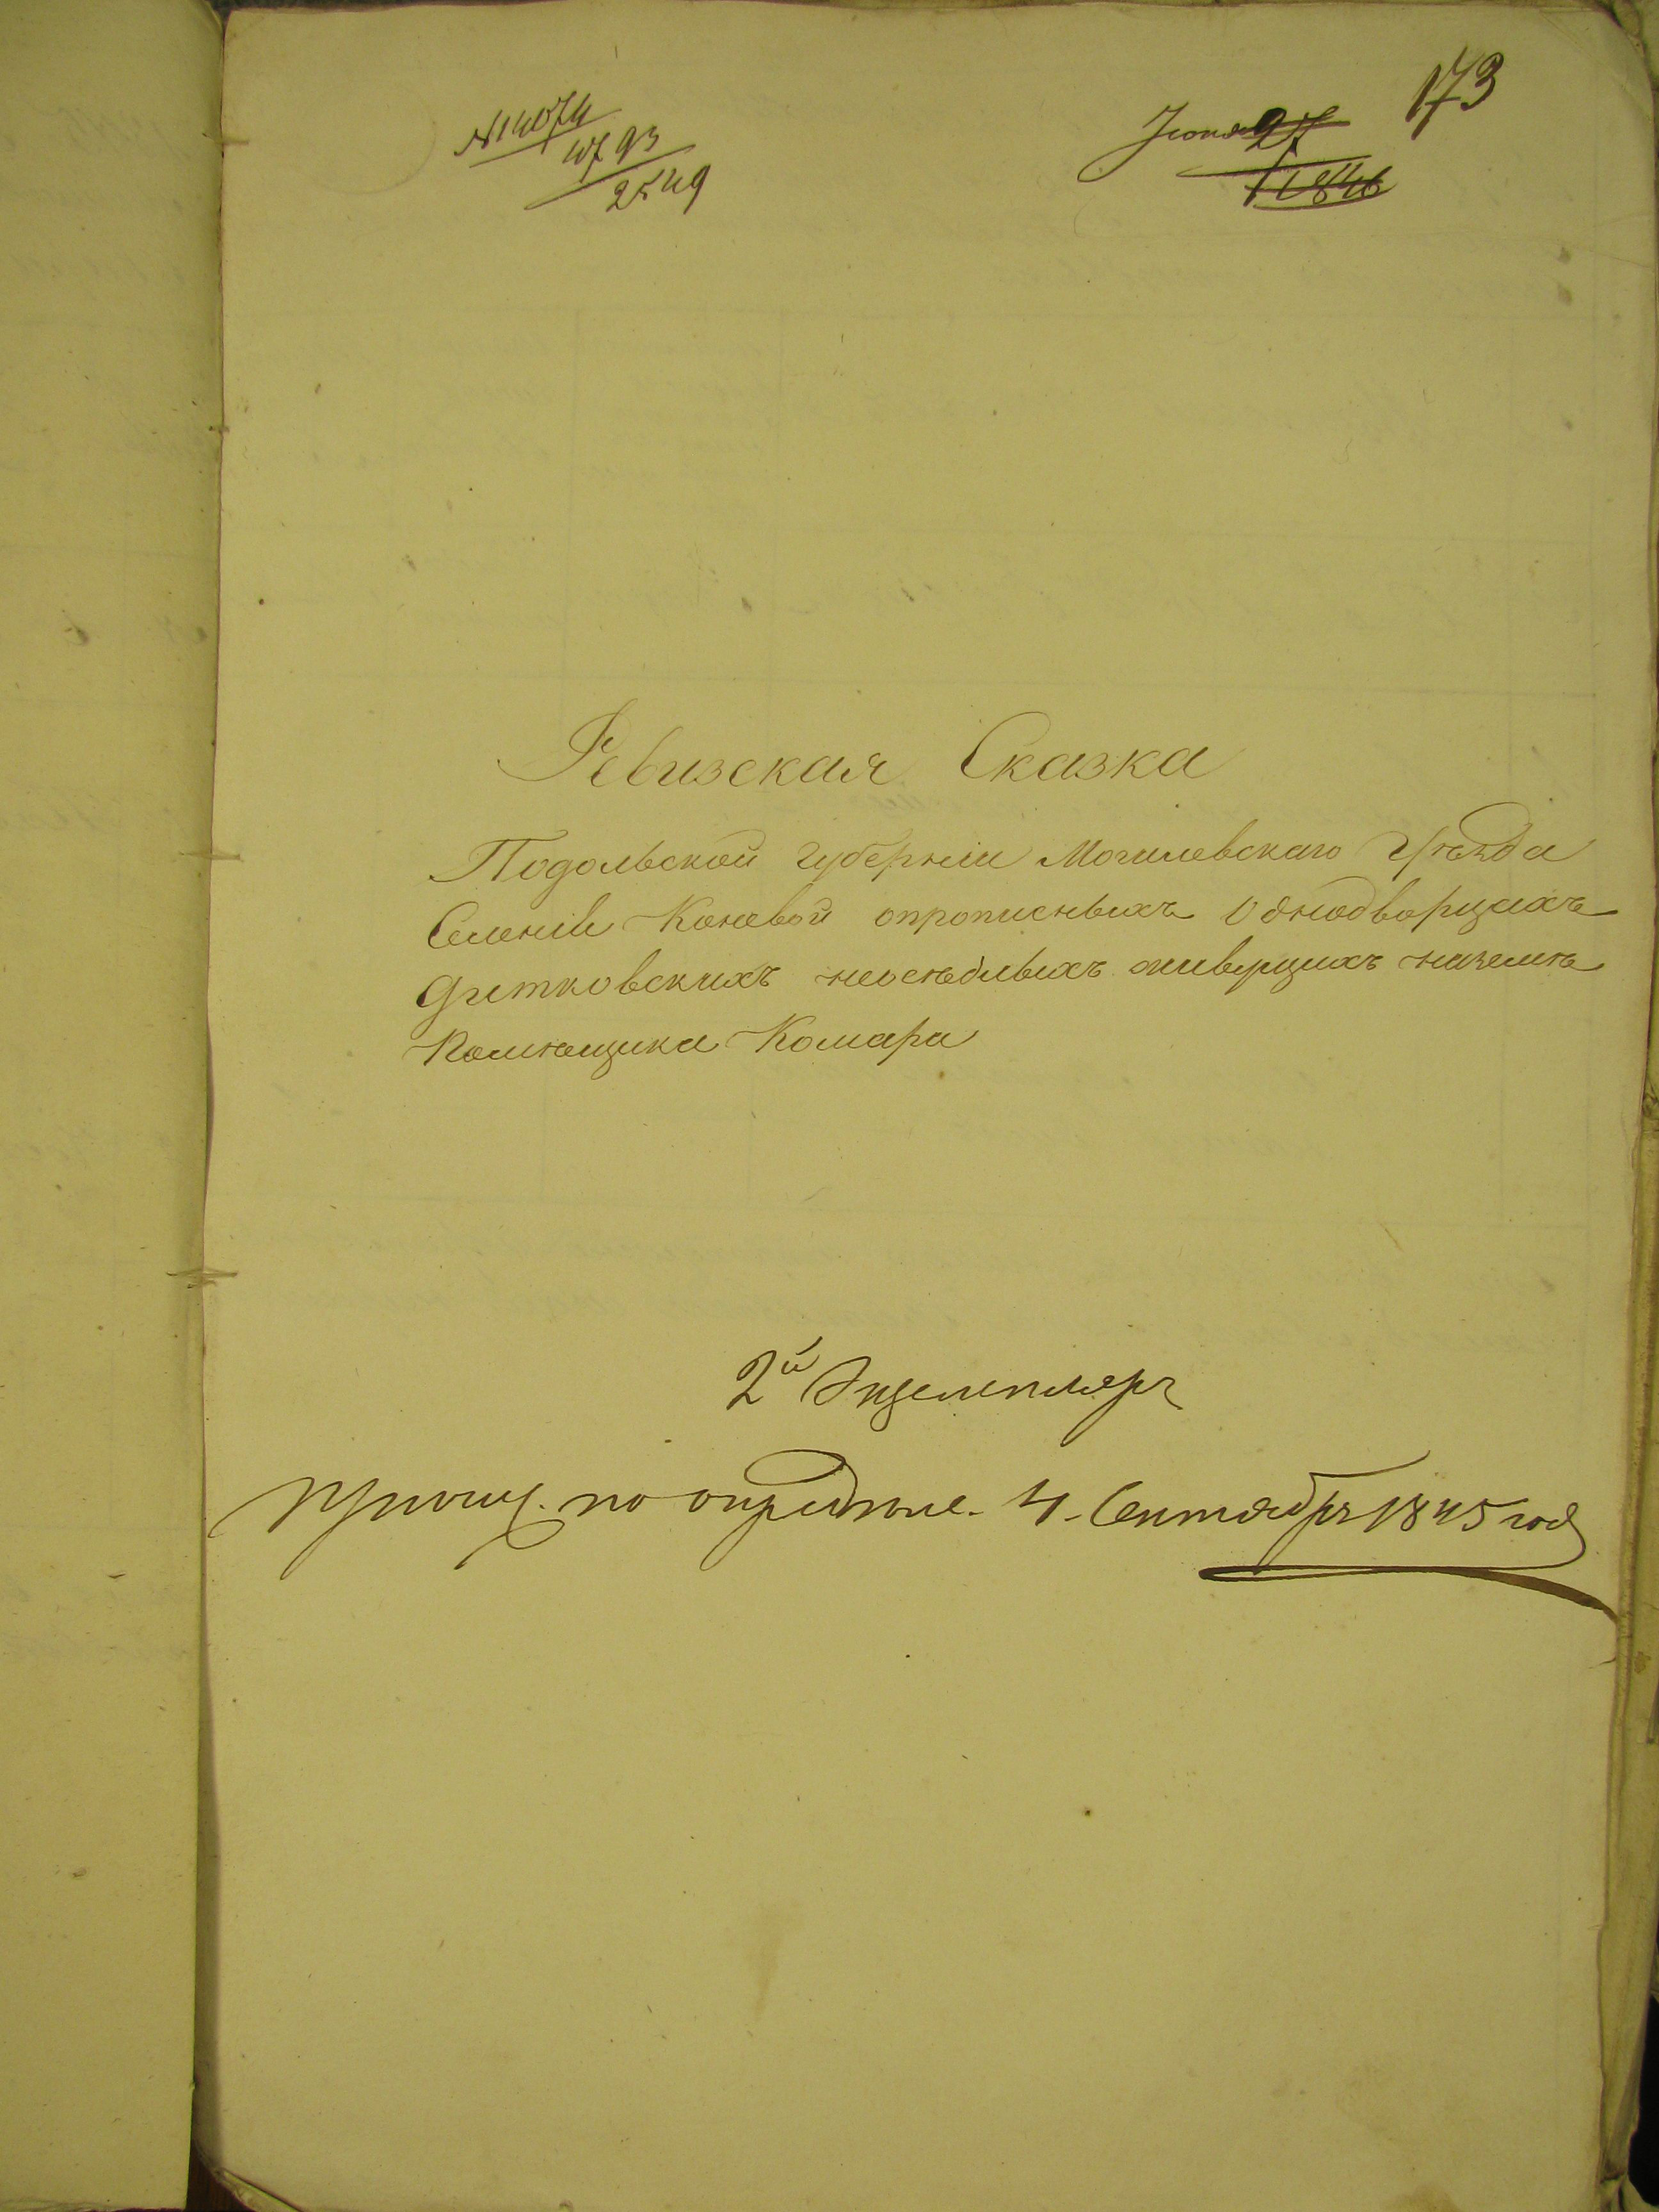 173
Июня 27
1846
№ 14074
10793
2549
Ревизская Сказка
Подольской губерніи Могилевскаго Уѣзда
Селенія Коневой опрописныхъ Однодворцахъ
Дитковскихъ неосѣдлыхъ живущихъ наземлѣ
Помѣщика Комара
2й Экземпляръ
по опредѣле. 4. Сентября 1845 года